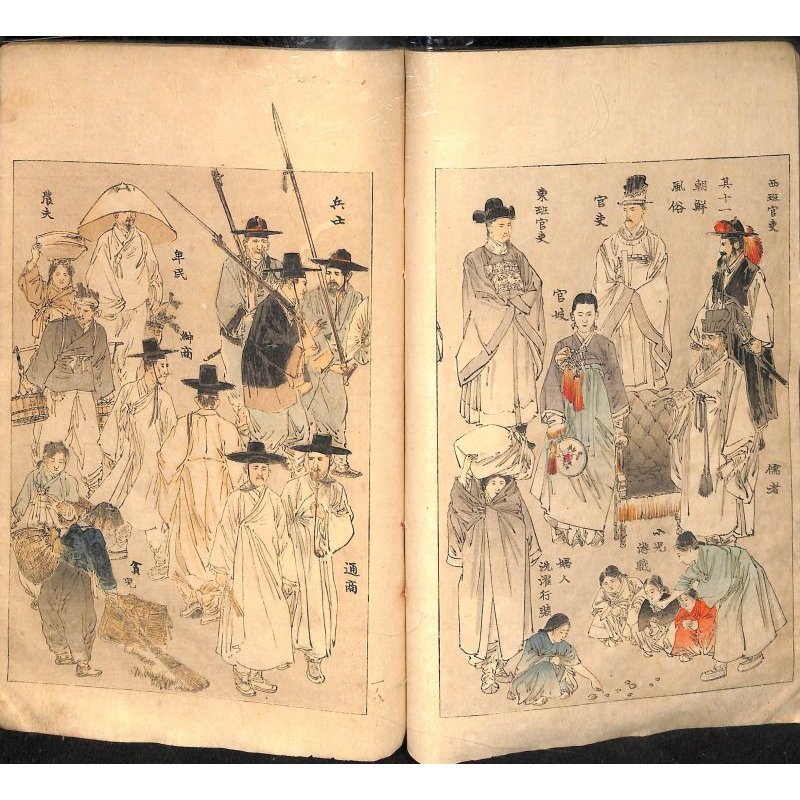 其十一
朝鮮
風俗
西班官吏
官吏
東班官吏
官妓
儒者
小児
遊戯
婦人
洗濯行装
兵士
農夫
卑民
通商
貧児